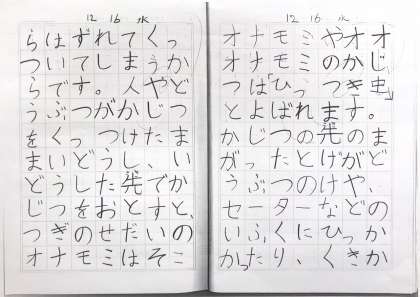 12 16 水
オナモミやオオ
オナモミのかじ
つは「ひっつき虫」
とよばれます。
かじつの先のま
がったとげがど
うぶつのけや、
セーターなどの
いふくにひっか
かったり、くきか
12 16 水
らはずれてくっ
ついてしまうか
らです。人やど
うぶつがかじつ
をくっつけたま
まいどうし、い
どうした先でか
じつをおとすと、
つぎのせだいの
オナモミはそこ